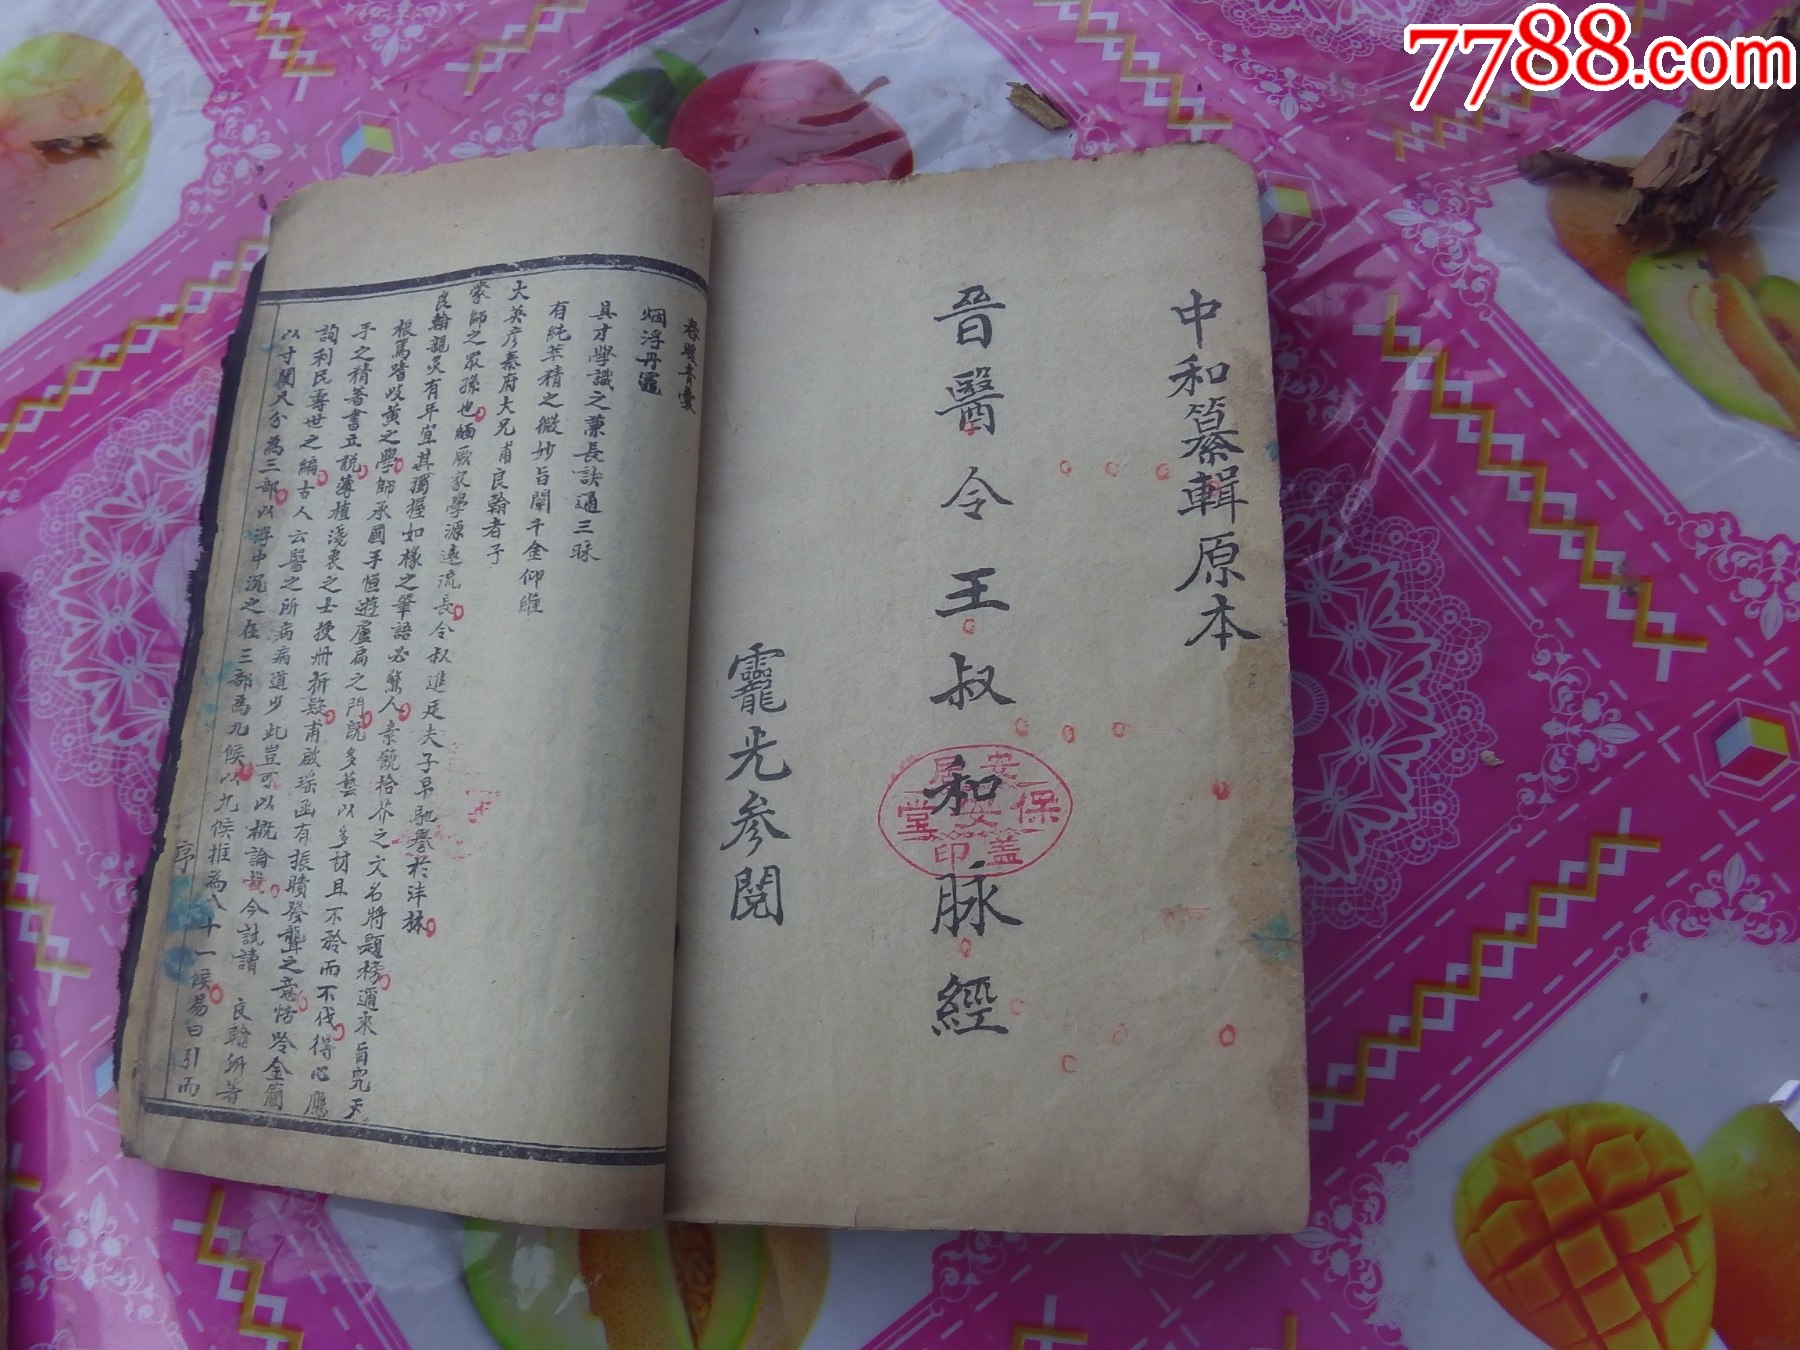 7788.com
中和纂輯原本
晉醫令王叔和脉經
靈光参閱
安居
保
堂
盖印
春暖青囊
烟浮丹竈
具才學識之兼長訣通三昧
有純萃精之微妙旨闡千金仰維
大英彦秦府大兄甫良翰者子
蒙師之眾孫也緬厥家學源遠流長令叔進廷夫子早馳譽於泮林
良翰親炙有年宜其獨握如椽之筆語必驚人素饒拾芥之文名將題榜邇來旨究天
根篤嗜岐黄之學師承國手恒遊盧扁之門説多藝以多材且不矜而不伐得心應
手之積著書立説薄植淺衷之士授册折疑甫啟瑶函有振聵發聾之意恬吟金簡
詢利民壽世之編古人云醫之所病病道少此豈可以概論哉今試讀 良翰所著
以寸關尺分為三部以浮中沉之在三部為九候以九候推為八十一候易曰引而
序